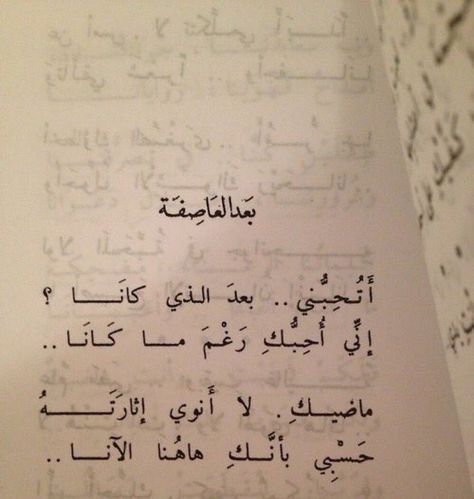 بَعد العَاصِفَة
أَتُحِبُّني .. بعدَ الذي كانَــا ؟
إنِّي أُحِبُّكِ رَغْمَ مــا كَــانَــا ..
ماضيــكِ. لا أَنوي إثارَتَــهُ
حَسْبِي بأنَّــكِ هاهُنا الآنــا ..